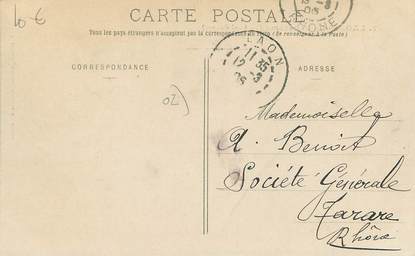 10 €
CARTE POSTALE
Tous les pays étrangers n'acceptent pas la correspondance au recto (Se renseigner à la Poste)
CORRESPONDANCE
ADRESSE
LYON
11 35
12 -3
06
RHÔNE
(02
Mademoiselle
A. Benoit
Société Générale
Tarare
Rhône